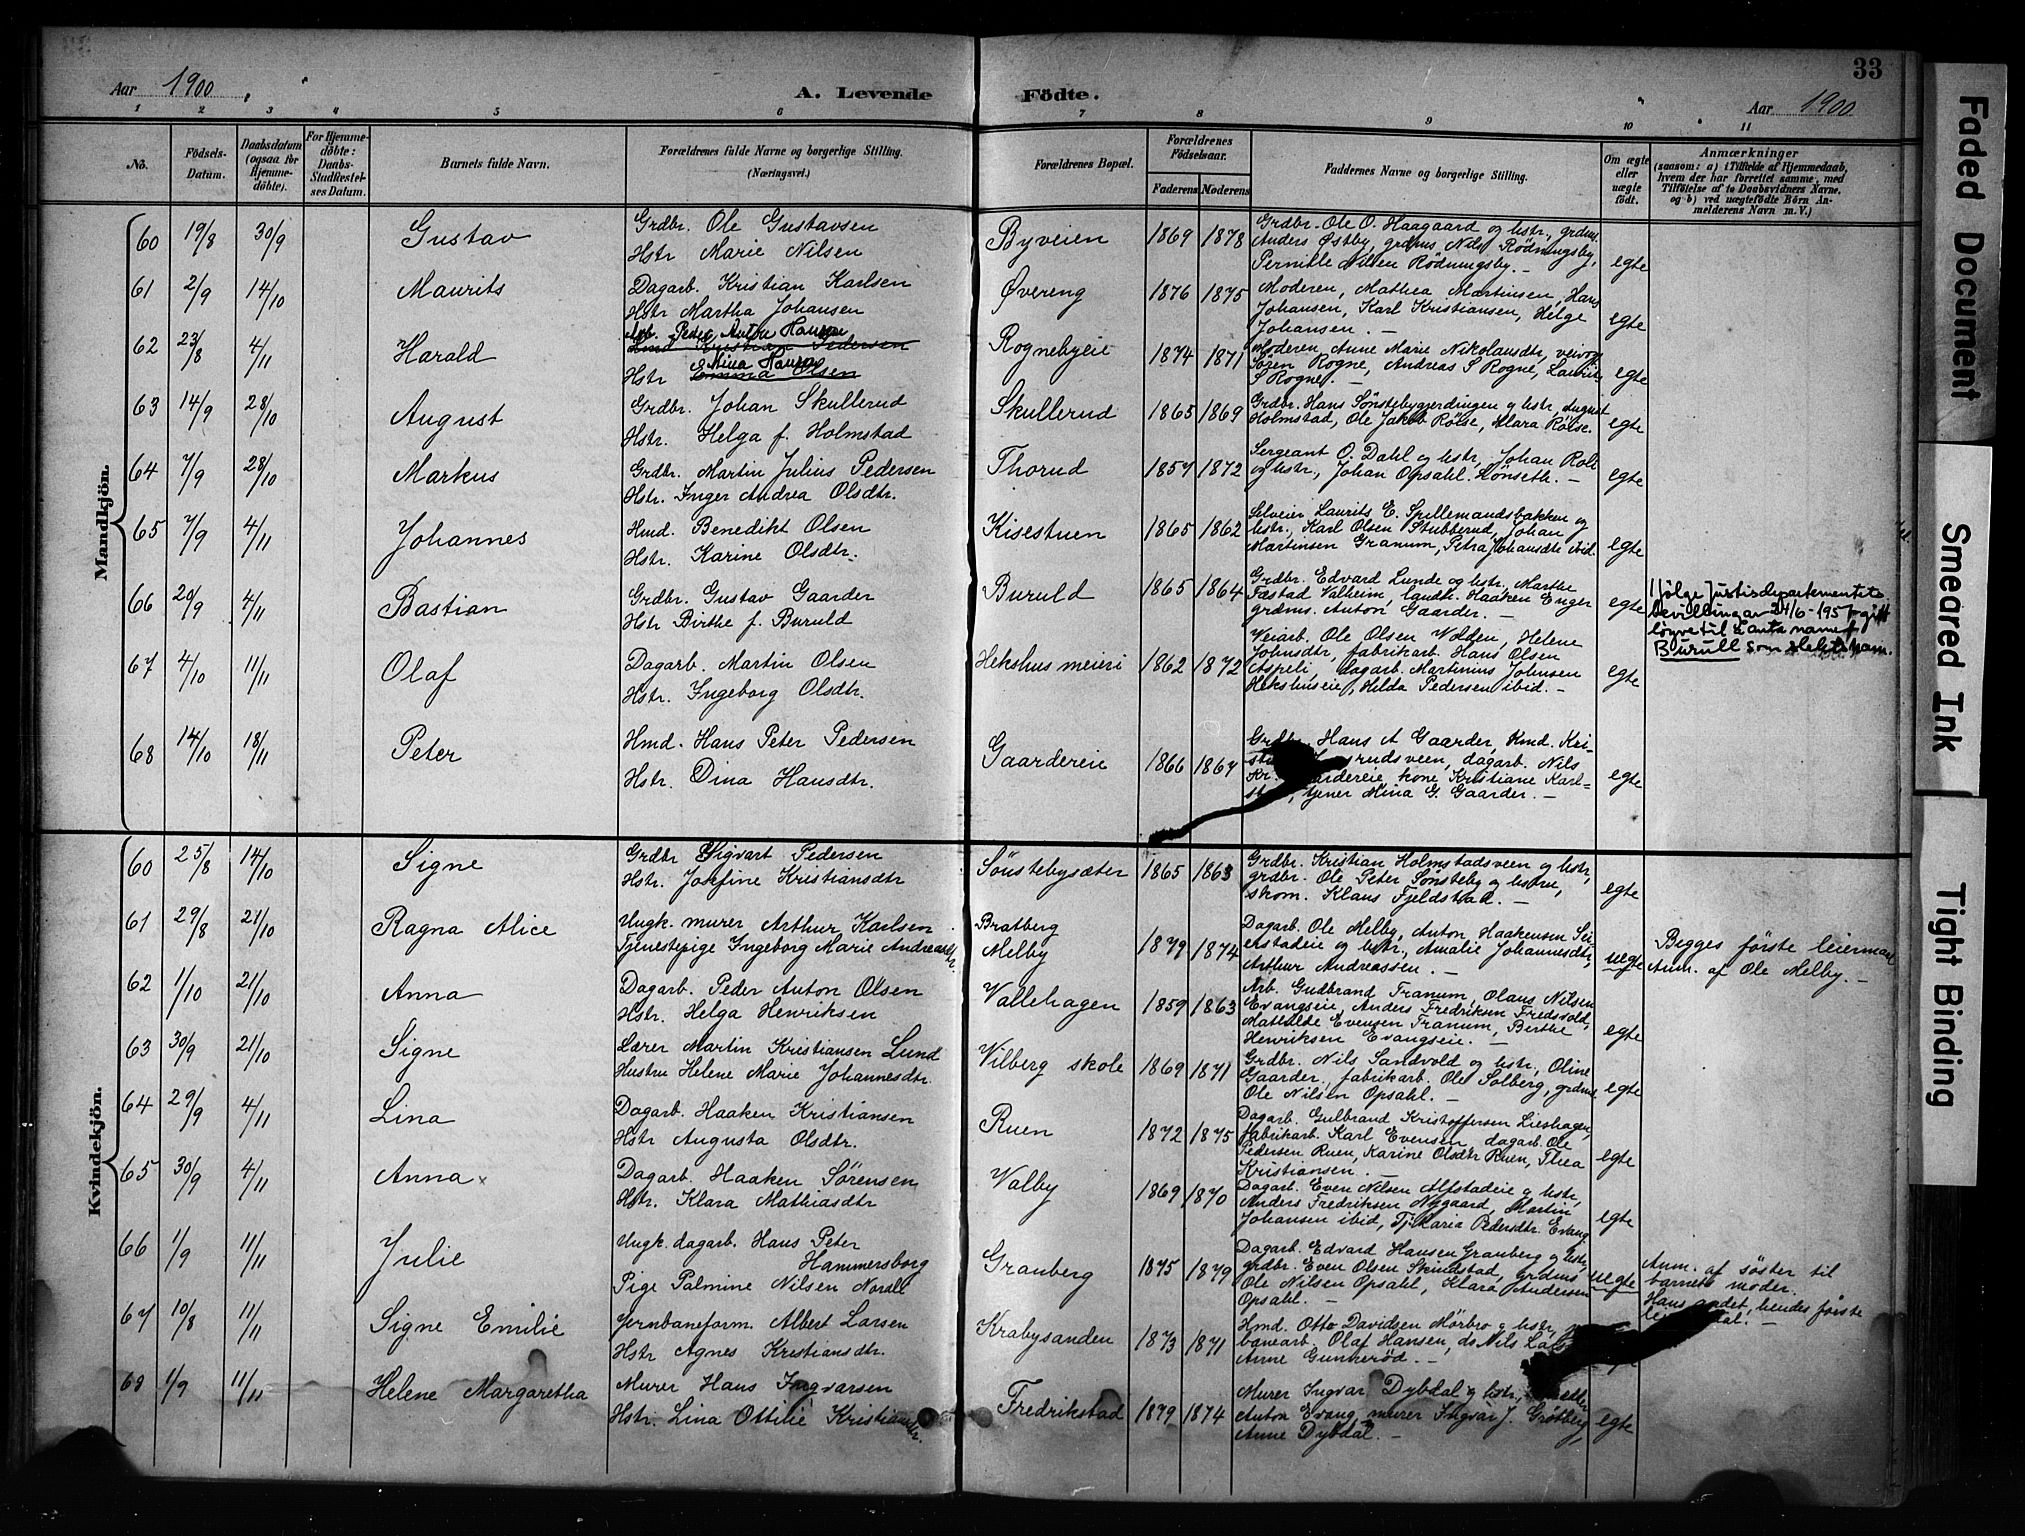 33
Aar 1900
A. Levende Födte.
Aar 1900
1 2 3 4 5 6 7 8 9 10 11
No.
Födsels-Datum.
Daabsdatum (ogsaa for Hjemme-döbte).
For Hjemme-döbte: Daabs-Stadfæstel-ses Datum.
Barnets fulde Navn.
Forældrenes fulde Navne og borgerlige Stilling. (Næringsvei.)
Forældrenes Bopæl.
Forældrenes Födselsaar.
Faderens Moderens
Faddernes Navne og borgerlige Stilling.
Om ægte eller uægte födt.
Anmærkninger
(saasom: a) i Tilfælde af Hjemmedaab,
hvem der har forrettet samme, med
Tilföielse af to Daabsvidners Navne,
og b) ved uægtefödte Börn An-
melderens Navn m. V.)
Mandkjön.
60 19/8 30/9 Gustav
Grdbr. Ole Gustavsen
Hstr Marie Nilsen
Byveien 1869 1878
Grdbr. Ole O. Haagaard og hstr., grdms.
Anders Østby, grdms Nils Rødningsby,
Pernille Nilsen Rødningsby. —
egte
61 2/9 14/10 Maurits
Dagarb. Kristian Karlsen
Hstr Martha Johansen
Øvereng 1876 1875
Moderen, Mathea Martinsen, Hans
Johansen, Karl Kristiansen, Helge
Johansen. —
egte
62 23/8 4/11 Harald
Arb. Peder Anton Hansen
Hmd Kristian Pedersen
Mina Hansen
Hstr Emma Olsen
Rognebyeie 1874 1871
Moderen, Anne Marie Nikolausdtr, veivog.
Søren Rogne, Andreas S Rogne, Laurits
S Rogne. —
egte
63 14/9 28/10 August
Grdbr. Johan Skullerud
Hstr. Helga f. Holmstad
Skullerud 1865 1869
Grdbr. Hans Sønstebygjerdingen og hstr, August
Holmstad, Ole Jakob Röise, Klara Röise.
egte
64 7/9 28/10 Markus
Grdbr. Martin Julius Pedersen
Hstr. Inger Andrea Olsdtr.
Thorud 1857 1872
Sergeant O. Dahl og hstr, Johan
og hstr., Johan Opsahl. Lønseth. —
egte
65 7/9 4/11 Johannes
Hmd. Benedikt Olsen
Hstr. Karine Olsdtr.
Kisestuen 1865 1862
Selveier Laurits E. Spillemandsbakken og
hstr., Karl Olsen Stubberud, Johan
Martinsen Granum, Petra Johansdtr ibid.
egte
66 20/9 4/11 Bastian
Grdbr. Gustav Gaarder
Hstr Birthe f. Buruld
Buruld 1865 1864
Grdbr. Edvard Lunde og hstr, Marthe
Fæstad Valheim, landh. Haaken Enger
grdms. Anton Gaarder. —
egte
Ifølge Justisdepartementets
bevilling av 24/6-1957 gitt
løyve til å anta namet
Burull som slektsnam.
67 4/10 11/11 Olaf
Dagarb. Martin Olsen
Hstr. Ingeborg Olsdtr.
Hekshus meieri 1862 1872
Veiarb. Ole Olsen Volden, Helene
Johnsdtr, fabrikarb. Hans Olsen
Aspeli, dagarb. Martinius Johnsen
Hekshuseie, Helda Pedersen ibid. —
egte
68 14/10 18/11 Peter
Hmd. Hans Peter Pedersen
Hstr. Dina Hansdtr.
Gaardereie 1866 1867
Grdbr. Hans A Gaarder, Hmd. Kri-
rudsveen, dagarb. Nils
Kr. Gaardereie, kone Kristiane Karl-
tjener Mina G. Gaarder. —
egte
Kvindekjön.
60 25/8 14/10 Signe
Grdbr Sigvart Pedersen
Hstr. Josefine Kristiansdtr
Sönstebysæter 1865 1863
Grdbr. Kristian Holmstadsveen og hstr,
grdbr. Ole Peter Sønsteby og hustru,
skom. Klaus Fjeldstad. —
egte
61 29/8 21/10 Ragna Alice
Ungk. murer Arthur Karlsen
Tjenestepige Ingeborg Marie Andreasdtr.
Bratberg
Melby
1879 1874
Dagarb. Ole Melby, Anton Haakensen Sei-
erstadeie og hstr., Amalie Johannesdtr,
Arthur Andreassen. —
uegte
Begges første leiermaal
Anm. af Ole Melby. —
62 1/10 21/10 Anna
Dagarb. Peder Anton Olsen
Hstr. Helga Henriksen
Vallehagen 1859 1863
Arb. Gudbrand Franum, Olaus Nilsen
Evangseie, Anders Fredriksen Fredsvold,
Mathilde Evensen Franum, Berthe
Henriksen Evangseie. —
egte
63 30/9 21/10 Signe
Lærer Martin Kristiansen Lund
Hustru Helene Marie Johannesdtr.
Vilberg skole 1869 1871
Grdbr. Nils Sandvold og hstr, Oline
Gaarder, fabrikarb. Ole Solberg, grdms
Ole Nilsen Opsahl. —
egte
64 29/9 4/11 Lina
Dagarb. Haaken Kristiansen
Hstr Augusta Olsdtr.
Ruen 1872 1875
Dagarb. Gulbrand Kristoffersen Lieshagen,
fabrikarb. Karl Evensen, dagarb. Ole
Pedersen Ruen, Karine Olsdtr Ruen, Thea
Kristiansen. —
egte
65 30/9 4/11 Anna x
Dagarb. Haaken Sörensen
Hstr. Klara Mathiasdtr
Valby 1869 1870
Dagarb. Even Nilsen Alfstadeie og hstr,
Anders Fredriksen Nygaard, Martin
Johansen ibid, Tj. Maria Pedersdtr. Evang
egte
66 1/9 11/11 Julie
Ungk. dagarb. Hans Peter
Hammersborg
Pige Palmine Nilsen Nordli
Granberg 1875 1879
Dagarb. Edvard Hansen Granberg og hstr,
grdbr. Even Olsen Skindstad, grdms
Ole Nilsen Opsahl, Klara Andersen
Opsahl. —
uegte
Anm. af søster til
barnets moder.
Hans andet, hendes første
67 10/8 11/11 Signe Emilie
Jernbaneform. Albert Larsen
Hstr Agnes Kristiansdtr.
Krabysanden 1873 1871
Hmd. Otto Davidsen Mörbro og hstr,
banearb. Olaf Hansen, do Nils
Anne Gunkerød. —
68 1/9 11/11 Helene Margaretha
Murer Hans Ingvarsen
Hstr. Lina Ottilie Kristiansdtr.
Fredrikstad 1879 1874
Murer Ingvar Dybdal og hstr,
Anton Evang, murer Ingvar J. Grøtberg,
Anne Dybdal. —
egte
Faded Document
Smeared Ink
Tight Binding